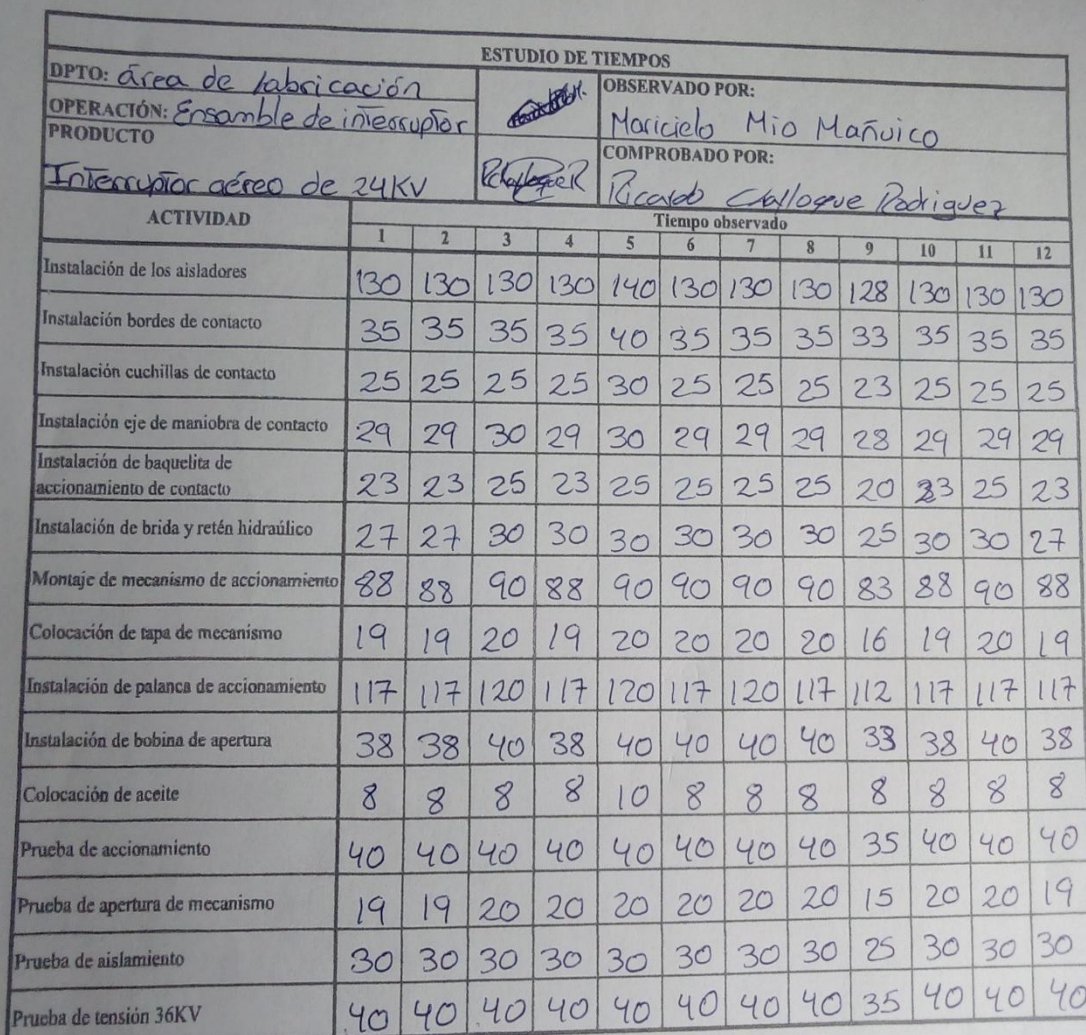 ESTUDIO DE TIEMPOS
DPTO: área de fabricación
OPERACIÓN: Ensamble de interruptor
PRODUCTO
Interruptor aéreo de 24KV
OBSERVADO POR:
Maricielo Mio Mañuico
COMPROBADO POR:
Ricardo Challoque Rodriguez
ACTIVIDAD Tiempo observado
1 2 3 4 5 6 7 8 9 10 11 12
Instalación de los aisladores 130 130 130 130 140 130 130 130 128 130 130 130
Instalación bordes de contacto 35 35 35 35 40 35 35 35 33 35 35 35
Instalación cuchillas de contacto 25 25 25 25 30 25 25 25 23 25 25 25
Instalación eje de maniobra de contacto 29 29 30 29 30 29 29 29 28 29 29 29
Instalación de baquelita de
accionamiento de contacto 23 23 25 23 25 25 25 25 20 23 25 23
Instalación de brida y retén hidraúlico 27 27 30 30 30 30 30 30 25 30 30 27
Montaje de mecanismo de accionamiento 88 88 90 88 90 90 90 90 83 88 90 88
Colocación de tapa de mecanismo 19 19 20 19 20 20 20 20 16 19 20 19
Instalación de palanca de accionamiento 117 117 120 117 120 117 120 117 112 117 117 117
Instalación de bobina de apertura 38 38 40 38 40 40 40 40 33 38 40 38
Colocación de aceite 8 8 8 8 10 8 8 8 8 8 8 8
Prueba de accionamiento 40 40 40 40 40 40 40 40 35 40 40 40
Prueba de apertura de mecanismo 19 19 20 20 20 20 20 20 15 20 20 19
Prueba de aislamiento 30 30 30 30 30 30 30 30 25 30 30 30
Prueba de tensión 36KV 40 40 40 40 40 40 40 40 35 40 40 40